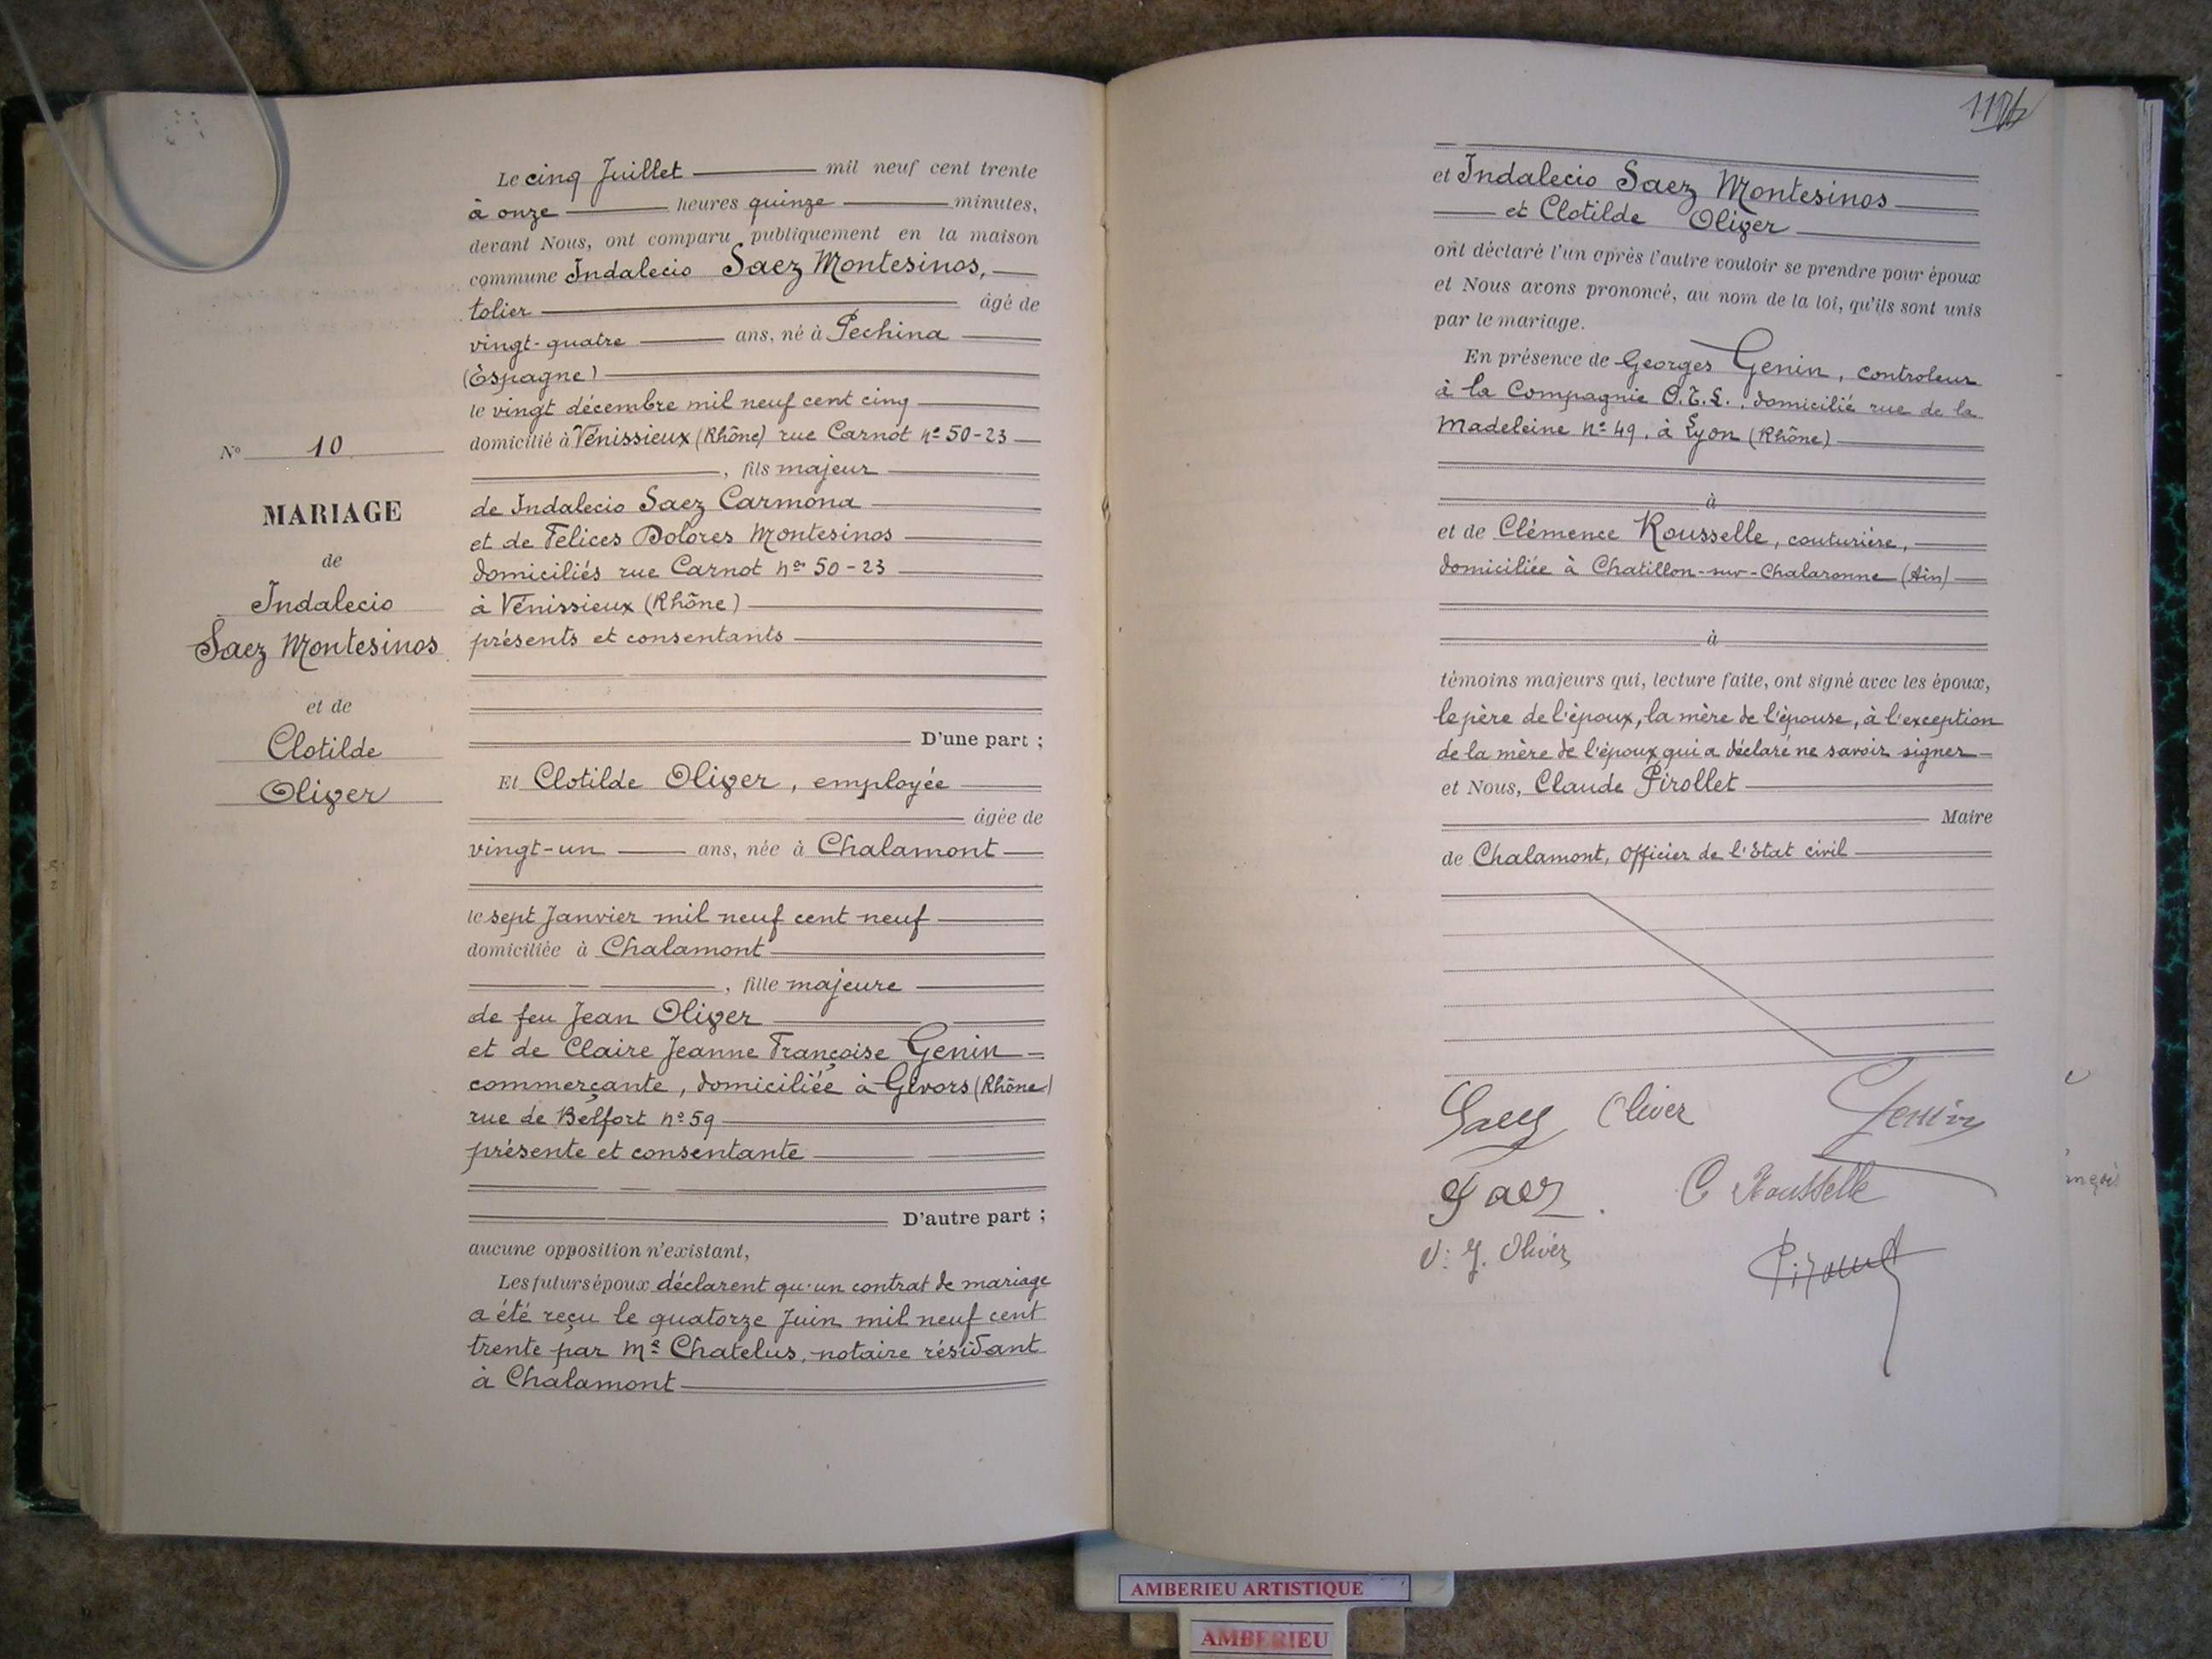 Le cinq Juillet mil neuf cent trente
à onze heures quinze minutes,
devant Nous, ont comparu publiquement en la maison
commune Indalecio Saez Montesinos,
tolier âgé de
vingt-quatre ans, né à Pechina
(Espagne)
le vingt décembre mil neuf cent cinq
domicilié à Vénissieux (Rhône) rue Carnot nº 50-23
, fils majeur
de Indalecio Saez Carmona
et de Felices Dolores Montesinos
domiciliés rue Carnot nos 50-23
à Vénissieux (Rhône)
présents et consentants
D'une part ;
Et Clotilde Oliver, employée
âgée de
vingt-un ans, née à Chalamont
le sept Janvier mil neuf cent neuf
domiciliée à Chalamont
, fille majeure
de feu Jean Oliver
et de Claire Jeanne Françoise Genin
commerçante, domiciliée à Givors (Rhône)
rue de Belfort nº 59
présente et consentante
D'autre part ;
aucune opposition n'existant,
Les futurs époux déclarent qu'un contrat de mariage
a été reçu le quatorze Juin mil neuf cent
trente par Me Chatelus, notaire résidant
à Chalamont
Nº 10
MARIAGE
de
Indalecio
Saez Montesinos
et de
Clotilde
Oliver
et Indalecio Saez Montesinos
et Clotilde Oliver
ont déclaré l'un après l'autre vouloir se prendre pour époux
et Nous avons prononcé, au nom de la loi, qu'ils sont unis
par le mariage.
En présence de Georges Genin, controleur
à la Compagnie O.T.L., domicilié rue de la
Madeleine nº 49, à Lyon (Rhône)
à
et de Clémence Rousselle, couturière,
domiciliée à Chatillon-sur-Chalaronne (Ain)
à
témoins majeurs qui, lecture faite, ont signé avec les époux,
le père de l'époux, la mère de l'épouse, à l'exception
de la mère de l'époux qui a déclaré ne savoir signer
et Nous, Claude Pirollet
Maire
de Chalamont, Officier de l'Etat civil
Saez Oliver Genin
Saez C Rousselle
V: J. Oliver
AMBERIEU ARTISTIQUE
AMBERIEU